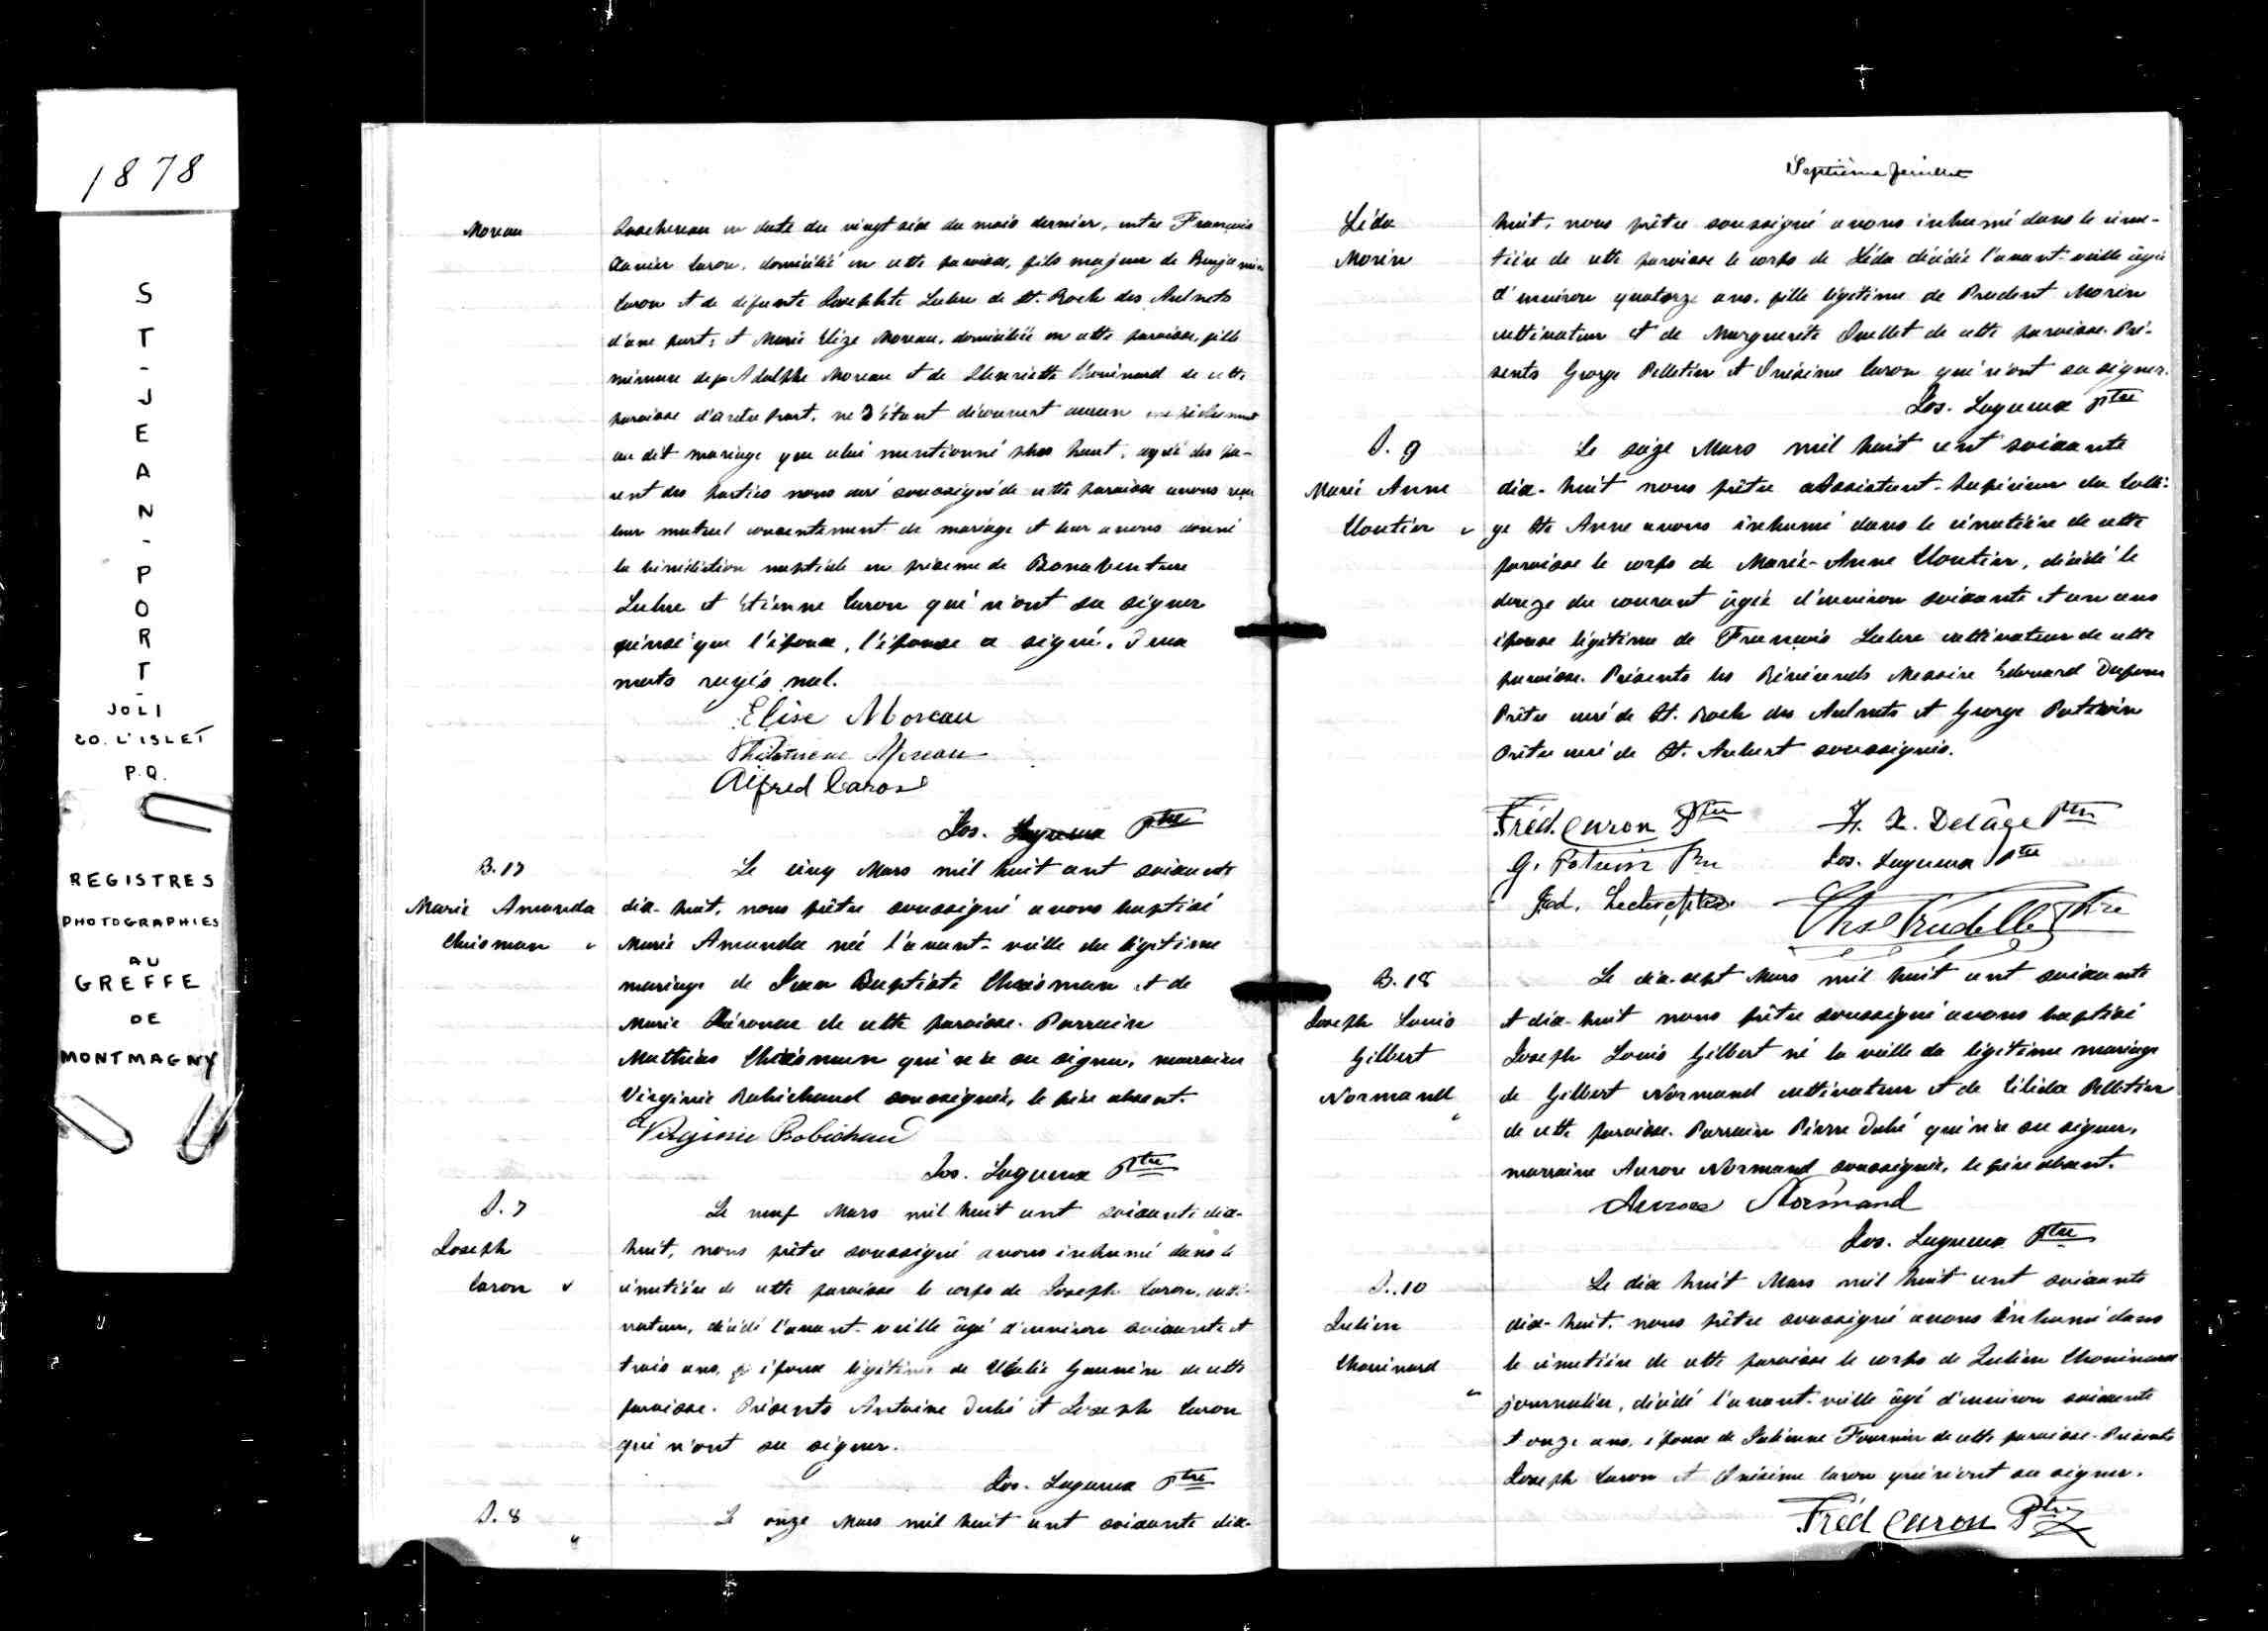 1878
ST-JEAN-PORT-
JOLI
CO. L'ISLET
P.Q.
REGISTRES
PHOTOGRAPHIES
AU
GREFFE
DE
MONTMAGNY
Moreau
en date du vingt six du mois dernier, entre François
Xavier Caron, domicilié en cette paroisse, fils majeur de Benjamin
Caron et de défunte Josephte Leclerc de St. Roch des Aulnets
d'une part; et Marie Elize Moreau, domiciliée en cette paroisse, fille
mineure de Adolphe Moreau et de Henriette Chouinard de cette
paroisse d'autre part, ne s'étant découvert aucun empêchement
au dit mariage que celui mentionné plus haut, agréé des pa-
rent des parties nous curé soussigné de cette paroisse avons reçu
leur mutuel consentement de mariage et leur avons donné
la bénédiction nuptiale en présence de Bonaventure
Leclerc et Etienne Caron qui n'ont su signer
ainsi que l'époux, l'épouse a signé. Deux
mots rayés nul.
Elise Moreau
Philomène Moreau
Alfred Caron
Jos. Lagueux Ptre
B. 17
Marie Amanda
Chrisman
Le cinq Mars mil huit cent soixante
dix-huit, nous prêtre soussigné avons baptisé
Marie Amanda née l'avant-veille du légitime
mariage de Jean Baptiste Chrisman et de
Marie de cette paroisse. Parrain
Mathias Chrisman qui n'a su signer, marraine
Virginie Robichaud soussignée, le père absent.
Virginie Robichaud
Jos. Lagueux Ptre
S. 7
Joseph
Caron
Le neuf Mars mil huit cent soixante dix-
huit, nous prêtre soussigné avons inhumé dans le
cimetière de cette paroisse le corps de Joseph Caron, culti-
vateur, décédé l'avant-veille âgé d'environ soixante et
trois ans, époux légitime de de cette
paroisse. Présents Antoine Dubé et Joseph Caron
qui n'ont su signer.
Jos. Lagueux Ptre
S. 8
Le onze Mars mil huit cent soixante dix-
Septième feuillet
Léda
Morin
huit, nous prêtre soussigné avons inhumé dans le cime-
tière de cette paroisse le corps de Léda décédée l'avant-veille âgée
d'environ quatorze ans, fille légitime de Prudent Morin
cultivateur et de Marguerite Ouellet de cette paroisse. Pré-
sents George Pelletier et Onésime Caron qui n'ont su signer.
Jos. Lagueux Ptre
S. 9
Marie Anne
Cloutier
Le seize Mars mil huit cent soixante
dix-huit nous prêtre assistant-supérieur du Collè-
ge Ste Anne avons inhumé dans le cimetière de cette
paroisse le corps de Marie-Anne Cloutier, décédé le
douze du courant âgée d'environ soixante et un ans
épouse légitime de François Leclerc cultivateur de cette
paroisse. Présents les Révérends Messire Edouard Dufour
Prêtre curé de St. Roch des Aulnets et George Potvin
Prêtre curé de St. Aubert soussignés.
Fréd. Caron Ptre
F. X. Delâge Ptre
G. Potvin Ptre
Jos. Lagueux Ptre
Jod. Leclerc Ptre
Chs Trudelle Ptre
B. 18
Joseph Louis
Gilbert
Normand
Le dix-sept Mars mil huit cent soixante
et dix-huit nous prêtre soussigné avons baptisé
Joseph Louis Gilbert né la veille du légitime mariage
de Gilbert Normand cultivateur et de Elida Pelletier
de cette paroisse. Parrain Pierre Dubé qui n'a su signer,
marraine Aurore Normand soussignée, le père absent.
Aurore Normand
Jos. Lagueux Ptre
S. 10
Julien
Chouinard
Le dix huit Mars mil huit cent soixante
dix-huit, nous prêtre soussigné avons inhumé dans
le cimetière de cette paroisse le corps de Julien Chouinard
journalier, décédé l'avant-veille âgé d'environ soixante
et onze ans, époux de Julienne Fournier de cette paroisse. Présents
Joseph Caron et Onésime Caron qui n'ont su signer.
Fréd Caron Ptre